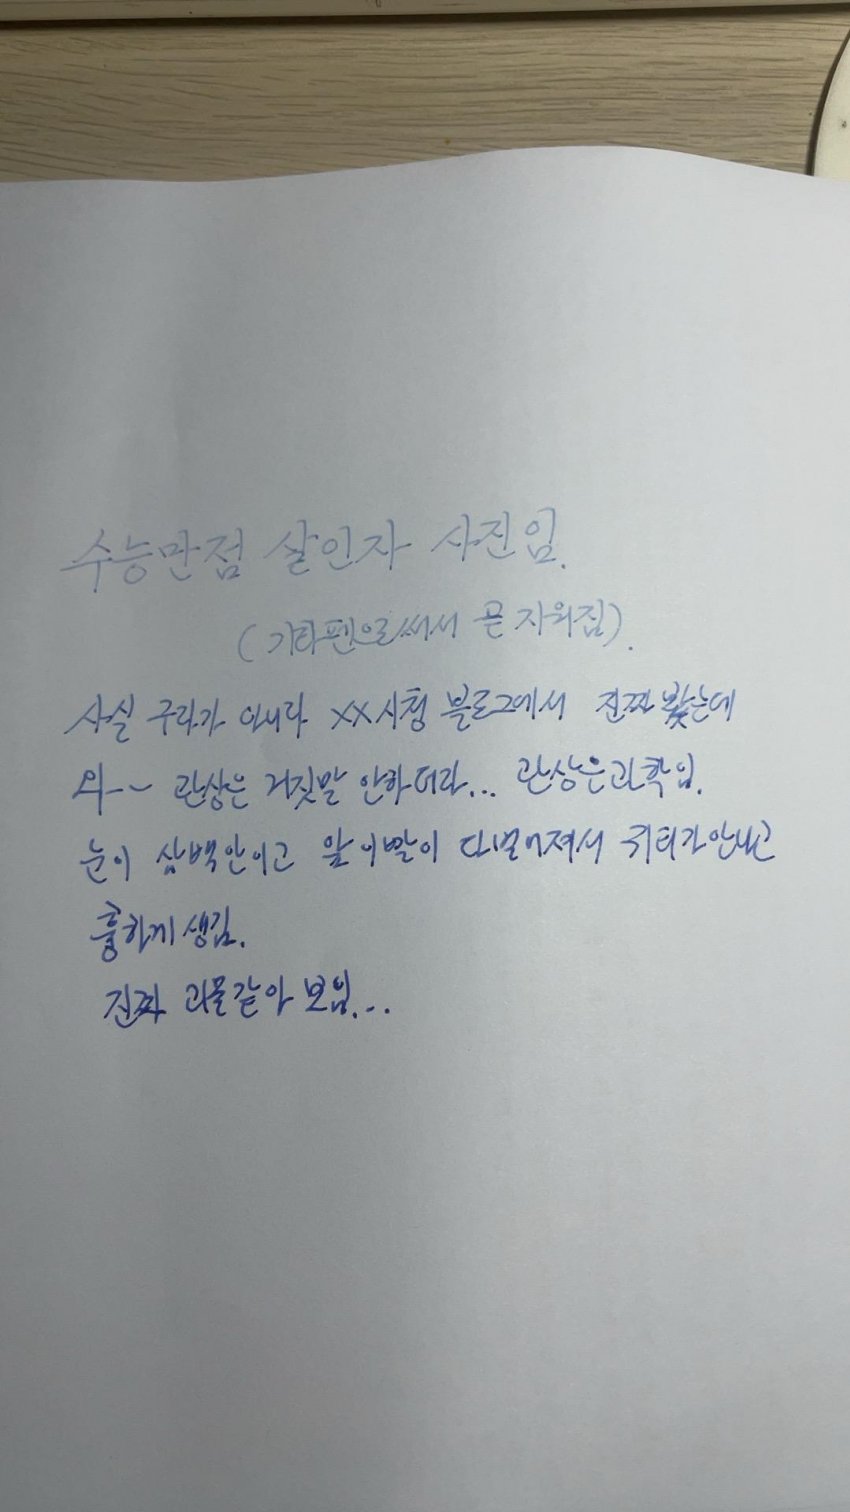 수능만점 살인자 사진임.
(기화펜으로써서 곧 지워짐).
사실 구라가 아니라 XX시청 블로그에서 진짜 봤는데
와~~ 관상은 거짓말 안하더라... 관상은과학임.
눈이 삼백안이고 앞이빨이 다벌어져서 귀티가안나고
흉하게 생김.
진짜 괴물같아 보임...